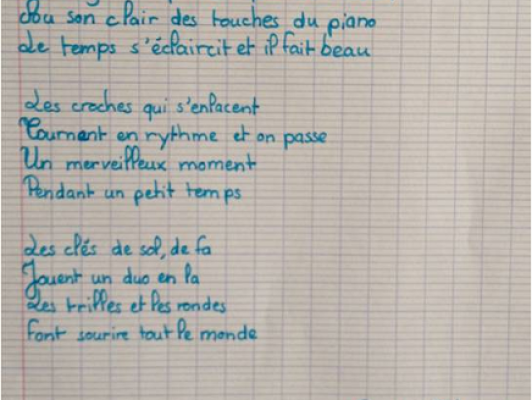 Du son clair des touches du piano
Le temps s'éclaircit et il fait beau
Les croches qui s'enlacent
Tournent en rythme et on passe
Un merveilleux moment
Pendant un petit temps
Les clés de sol, de fa
Jouent un duo en la
Les trilles et les rondes
Font sourire tout le monde